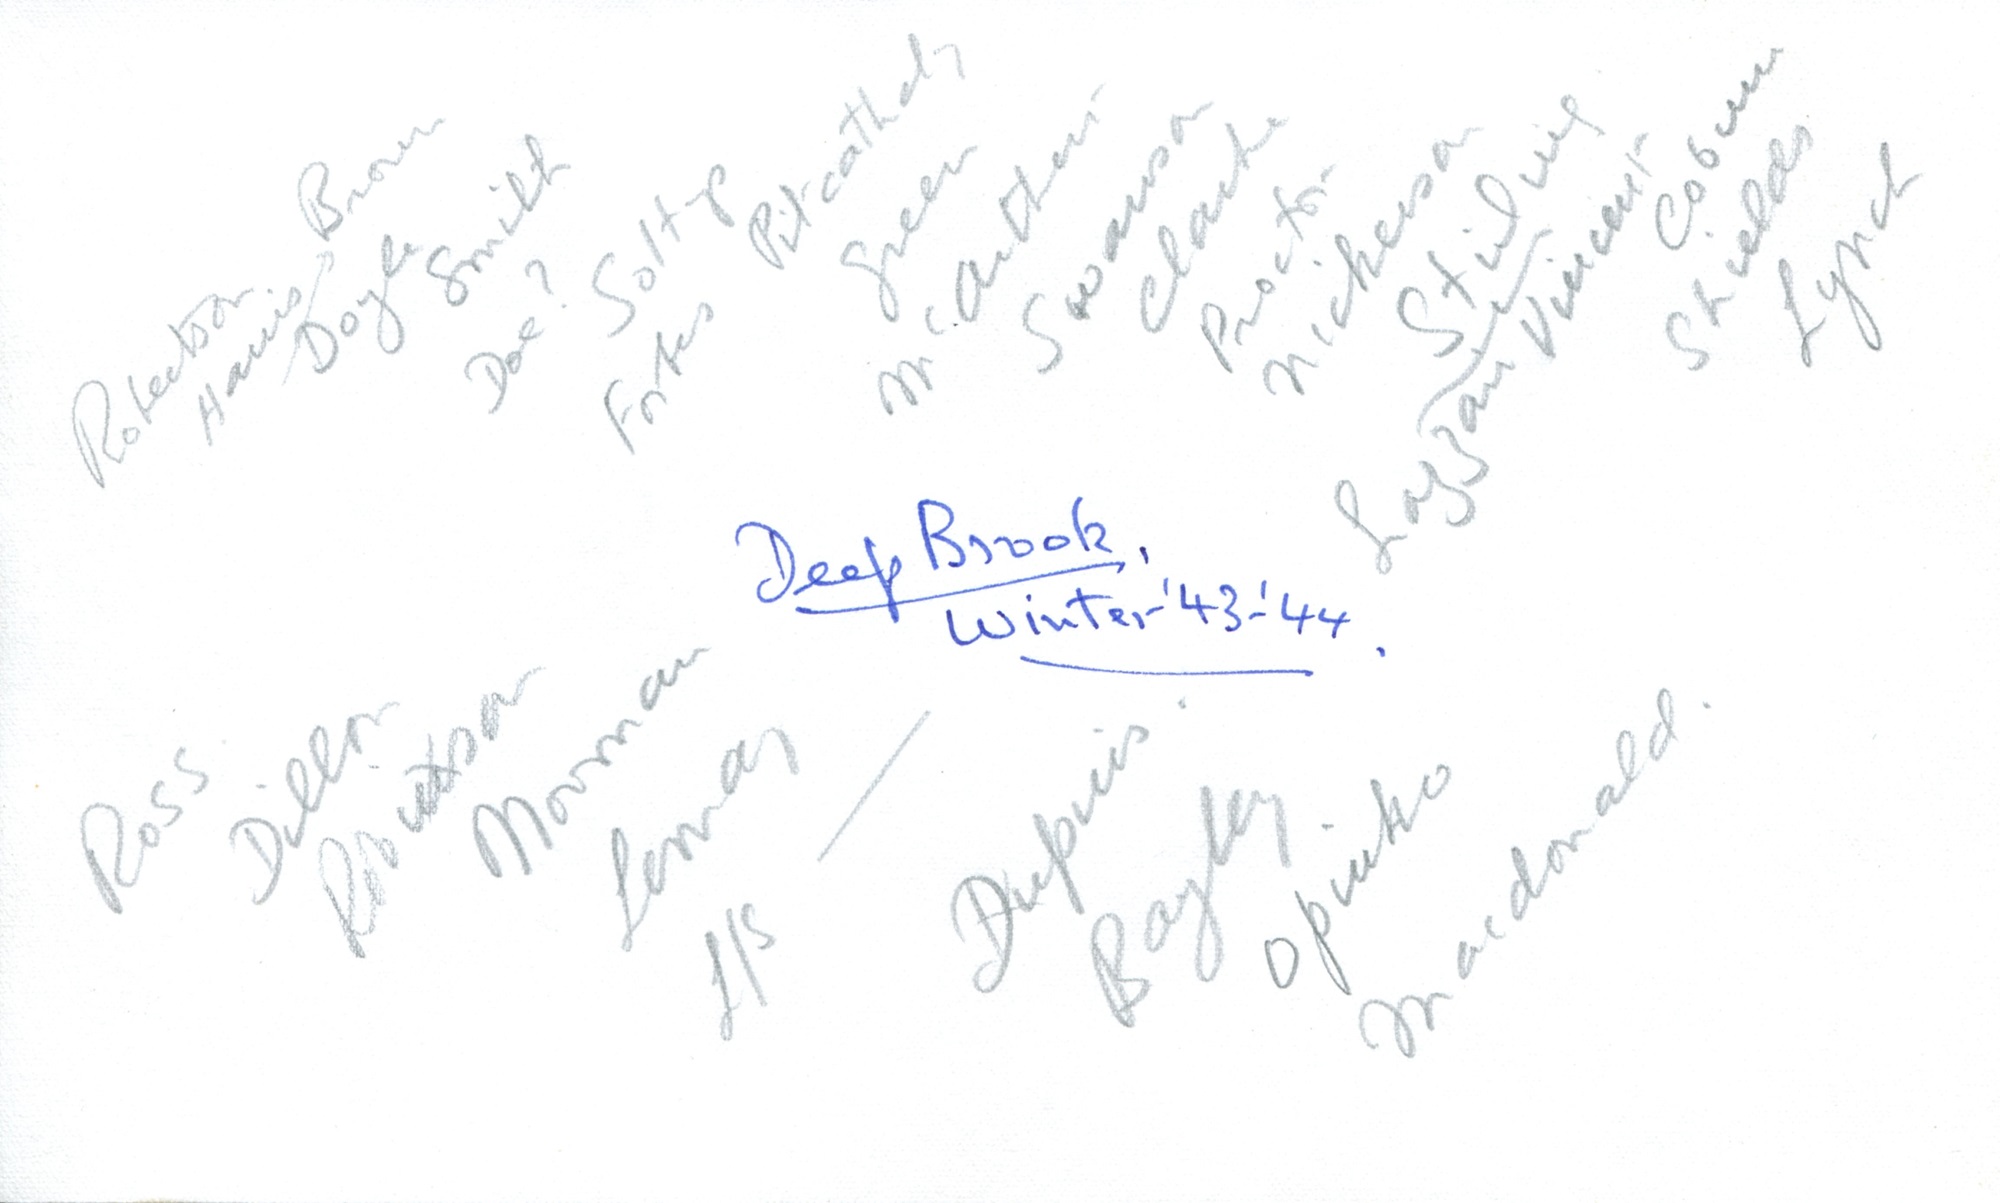 Robertson
Harris
Brown
Doyle
Smith
Doe?
Soltys
Forbes
Pitcathly
Green
McArthur
Swanson
Clarke
Proctor
Nickerson
Stirling
Vincent
Coburn
Shields
Lynch
Deep Brook,
Winter-'43-'44.
Ross
Dillon
Moorman
Lemay
L/S
Dupuis.
Bayley
Opinko
Macdonald.